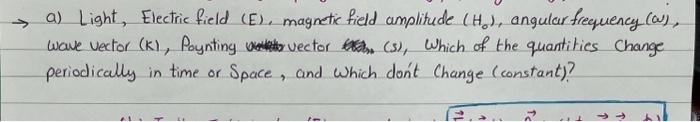 → a) Light, Electric field (E), magnetic field amplitude (H₀), angular frequency (ω),
wave vector (K), Poynting vector (S), Which of the quantities Change
periodically in time or Space, and Which don't Change (constant)?